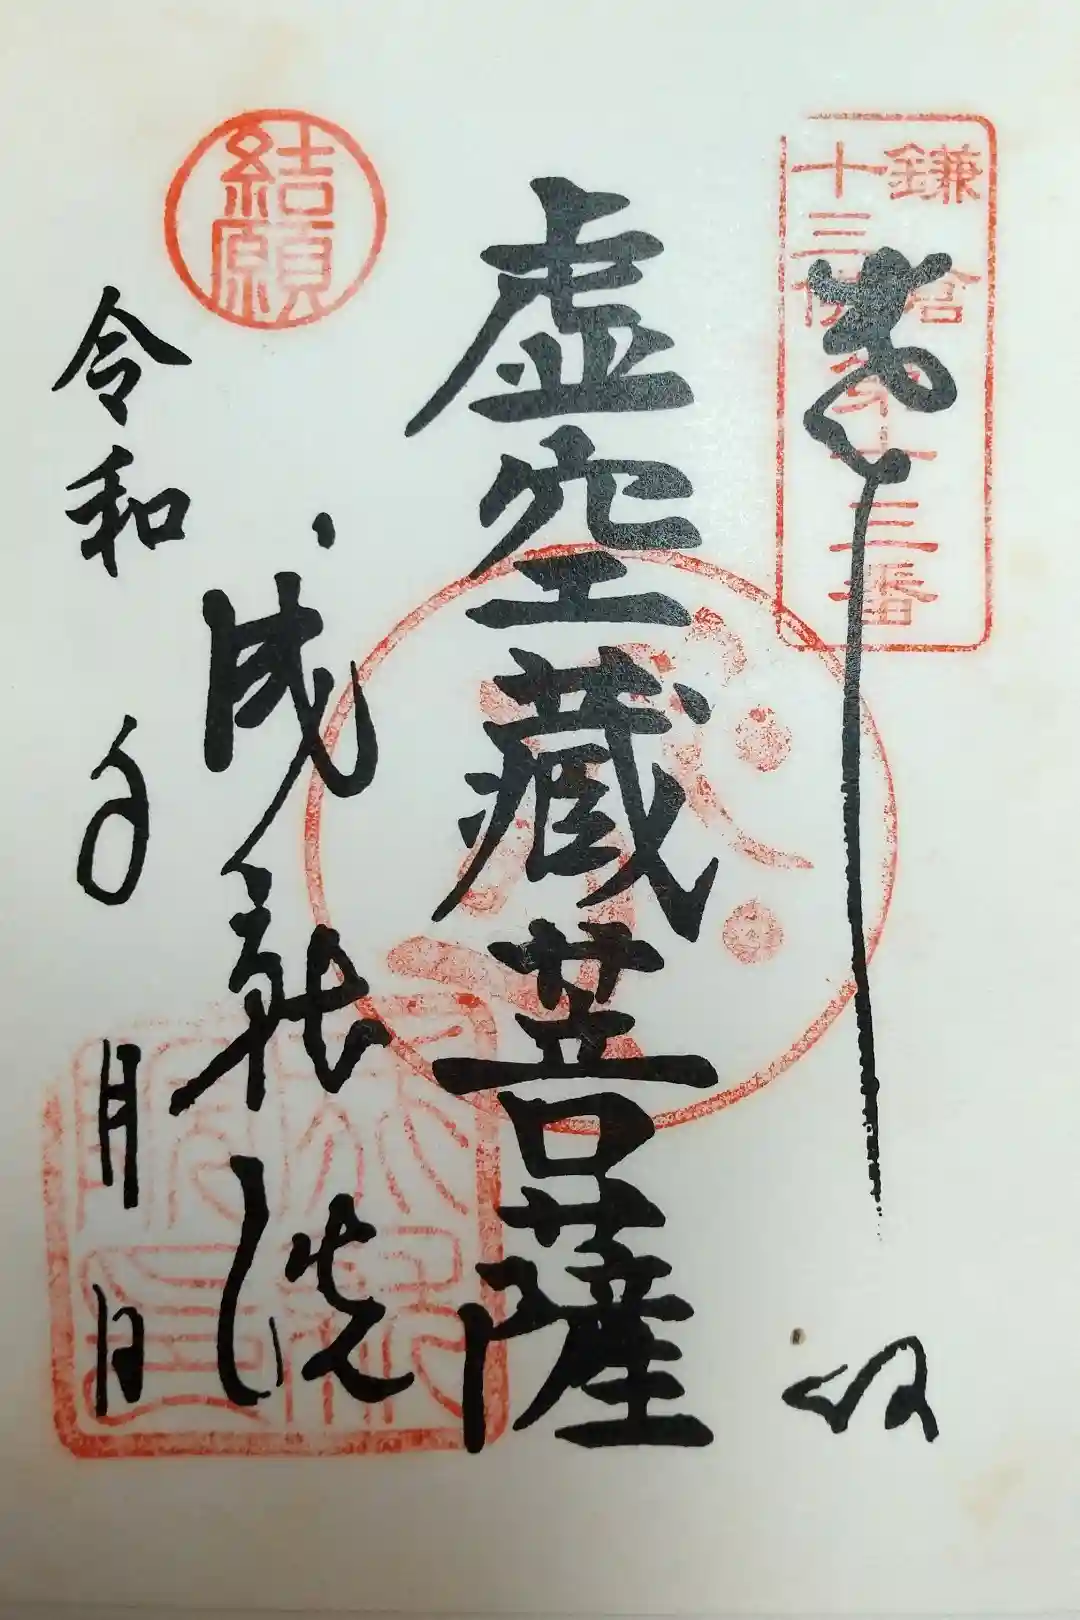 鎌倉
十三佛第十三番
奉拝
虚空蔵菩薩
成就院
令和 年 月 日
結願